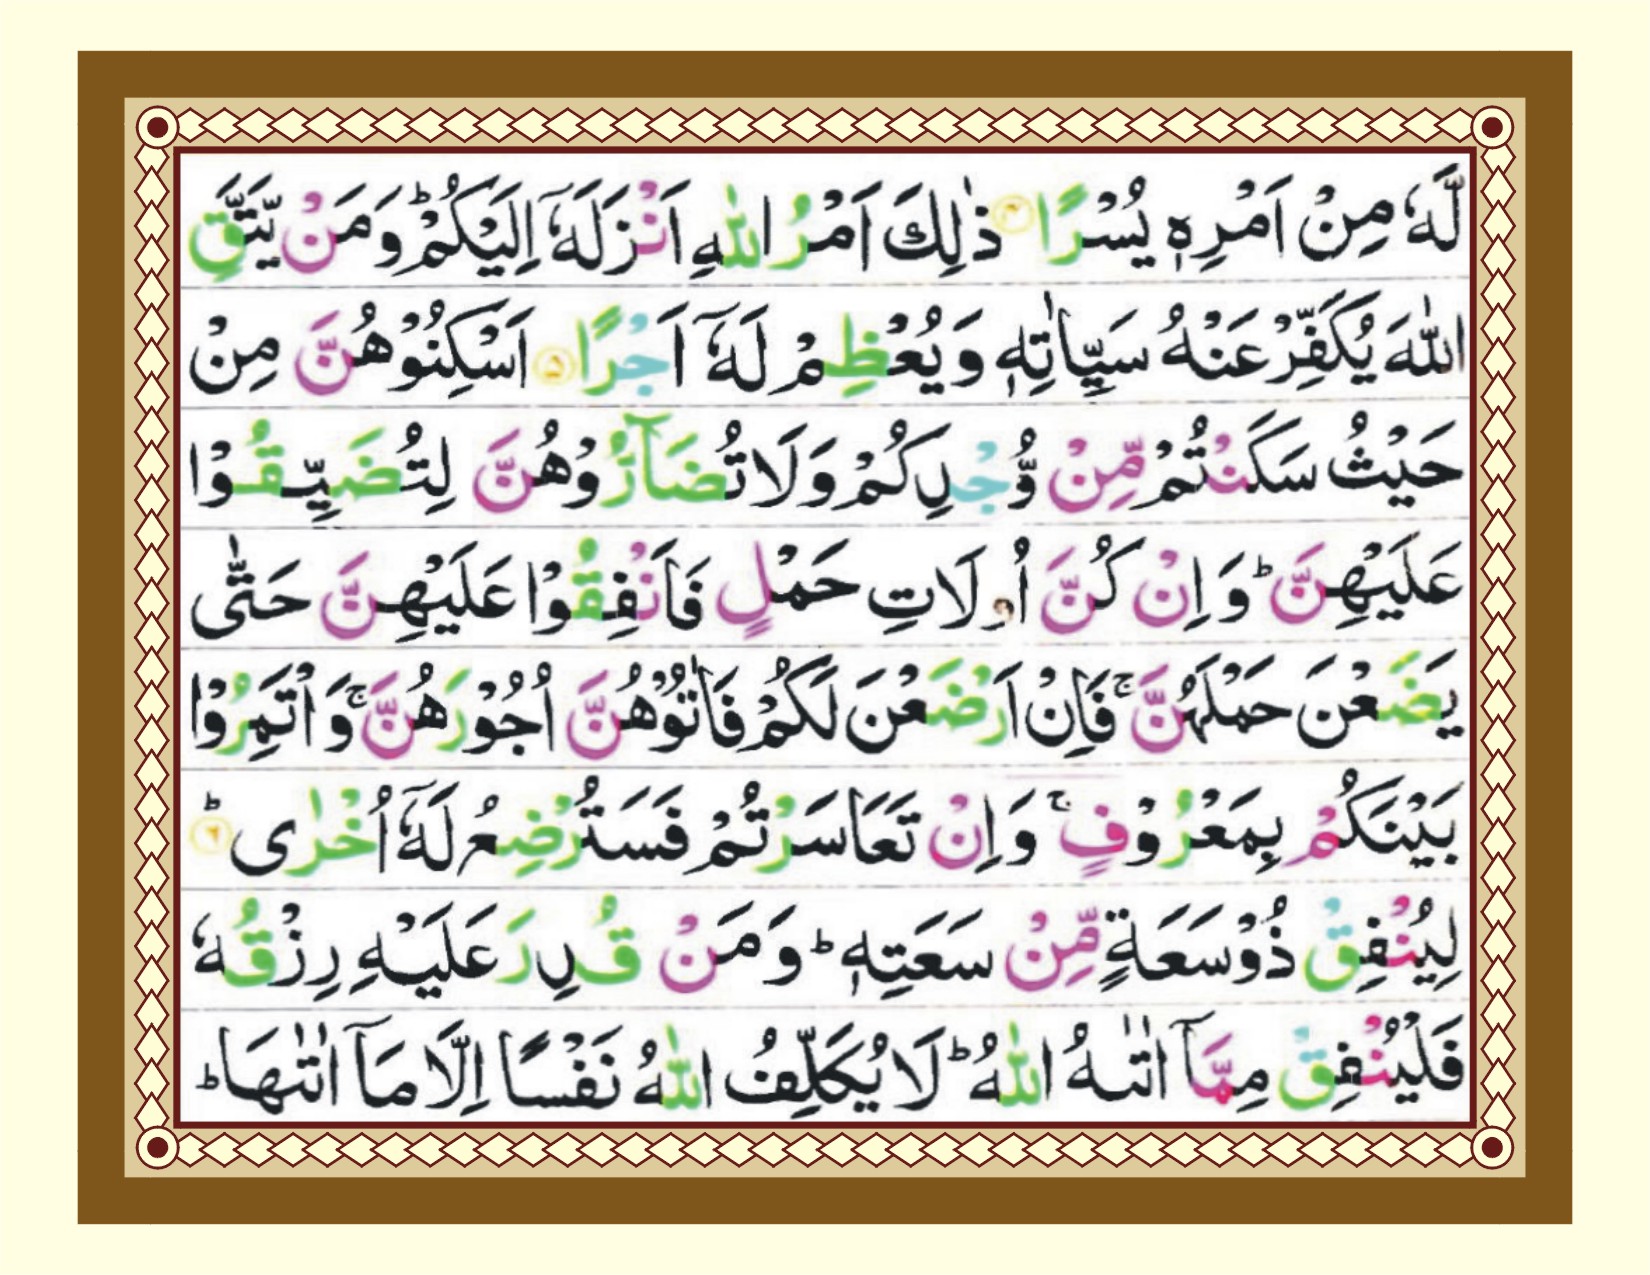 لَّهٗ مِنْ اَمْرِهٖ یُسْرًا ۴ ذٰلِكَ اَمْرُ اللّٰهِ اَنْزَلَهٗۤ اِلَیْكُمْ ؕ وَ مَنْ یَّتَّقِ
اللّٰهَ یُكَفِّرْ عَنْهُ سَیِّاٰتِهٖ وَ یُعْظِمْ لَهٗۤ اَجْرًا ۵ اَسْكِنُوْهُنَّ مِنْ
حَیْثُ سَكَنْتُمْ مِّنْ وُّجْدِكُمْ وَ لَا تُضَآرُّوْهُنَّ لِتُضَیِّقُوْا
عَلَیْهِنَّ ؕ وَ اِنْ كُنَّ اُولَاتِ حَمْلٍ فَاَنْفِقُوْا عَلَیْهِنَّ حَتّٰى
یَضَعْنَ حَمْلَهُنَّ ۚ فَاِنْ اَرْضَعْنَ لَكُمْ فَاٰتُوْهُنَّ اُجُوْرَهُنَّ ۚ وَ اْتَمِرُوْا
بَیْنَكُمْ بِمَعْرُوْفٍ ۚ وَ اِنْ تَعَاسَرْتُمْ فَسَتُرْضِعُ لَهٗۤ اُخْرٰى ؕ ۶
لِیُنْفِقْ ذُوْ سَعَةٍ مِّنْ سَعَتِهٖ ؕ وَ مَنْ قُدِرَ عَلَیْهِ رِزْقُهٗ
فَلْیُنْفِقْ مِمَّاۤ اٰتٰىهُ اللّٰهُ ؕ لَا یُكَلِّفُ اللّٰهُ نَفْسًا اِلَّا مَاۤ اٰتٰىهَا ؕ